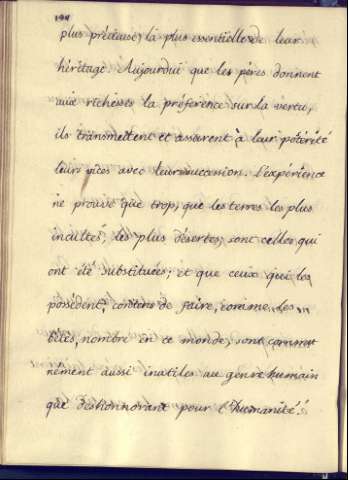 194
plus précieuse, la plus essentielle de leur
héritage. Aujourdui que les pères donnent
aux richesses la préférence sur la vertu,
ils transmettent et assurent à leur postérité
leurs vices avec leur succession. L'expérience
ne prouve que trop, que les terres les plus
incultes, les plus désertes, sont celles qui
ont été substituées; et que ceux qui les
possédent, contens de faire, comme les
bêtes, nombre en ce monde, sont commu
nément aussi inutiles au genre humain
que deshonnorant pour l'humanité.